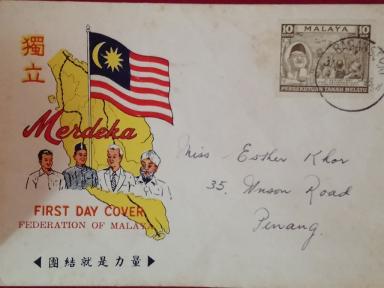 獨立
Merdeka
FIRST DAY COVER
FEDERATION OF MALAYA
◀ 團結就是力量 ▶
10 MALAYA 10
PERSEKUTUAN TANAH MELAYU
Miss Esther Khor
35, Road
Penang.